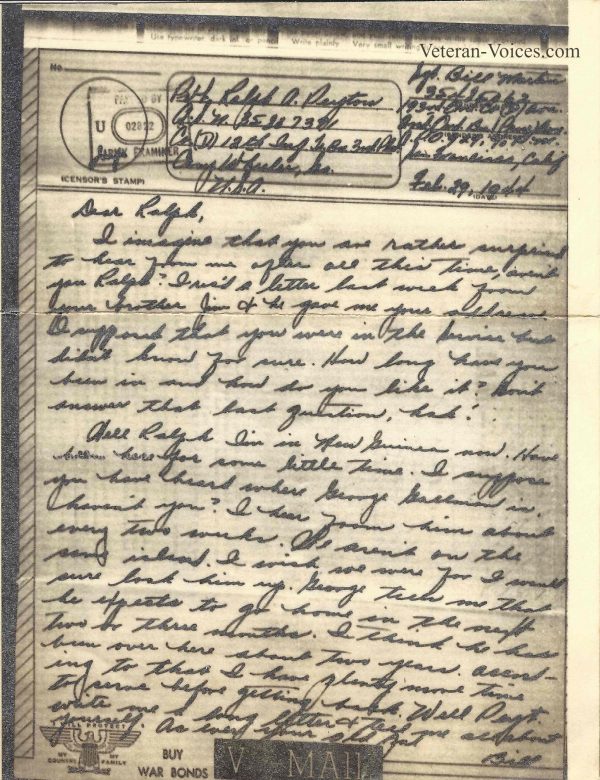 Use typewriter, dark ink, or pencil. Write plainly. Very small writing
Veteran-Voices.com
No.
PASSED BY
U
02822
ARMY EXAMINER
(CENSOR'S STAMP)
Pvt. Ralph A. Peyton
A.S.N. 35
Co (D) 12th Inf. Tr. Bn.
Camp Wheeler, Ga.
U.S.A.
Sgt. Bill
San Francisco, Calif
Feb. 29, 1944
Dear Ralph,
I imagine that you are rather surprised
to hear from me after all this time, aren't
you Ralph? I rec'd a letter last week from
your brother Jim & he gave me your address.
I supposed that you were in the service but
didn't know for sure. How long have you
been in and how do you like it? Don't
answer that last question, hah!
Well Ralph I'm in New Guinea now. Have
been here for some little time. I suppose
you have heard where George is in,
haven't you? I hear from him about
every two weeks. We aren't on the
same island. I wish we were for I would
sure look him up. George tells me that
he expects to go home in the next
two or three months. I think he has
been over here about two years. accord-
ing to that I have plenty more time
to serve before getting back. Well Peyt.
write me a long letter & tell me all about
yourself. As ever your old pal
Bill
WILL PROTECT
MY COUNTRY MY FAMILY
BUY
WAR BONDS
V MAIL